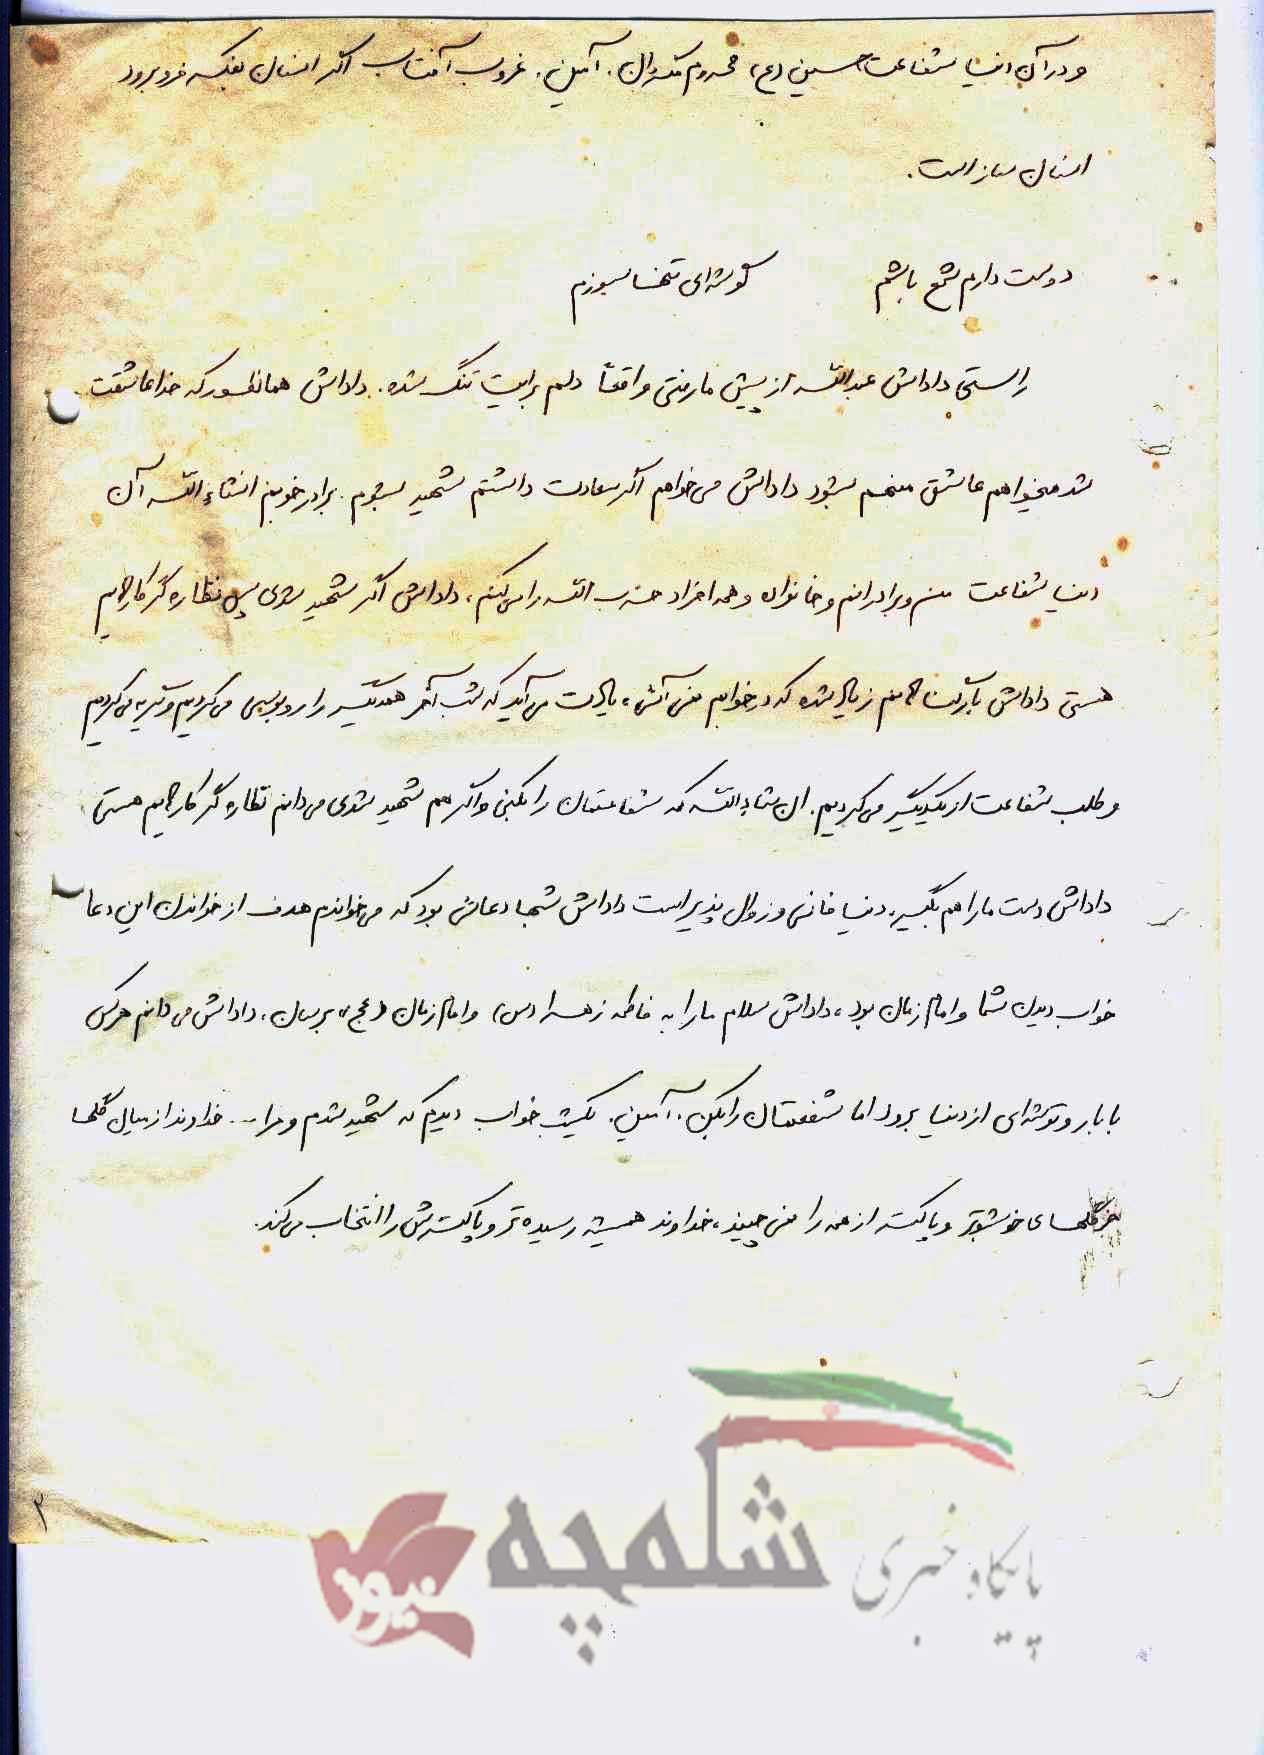 و در آن دنیا شفاعت حسین (ع) محروم مگردان. آمین. غروب آفتاب اگر انسان بفکر فرو برود
انسان ساز است.
دوست دارم شمع باشم گوشه‌ای تنها بسوزم
راستی داداش عبدالله از پیش ما رفتی واقعاً دلم برایت تنگ شده. داداش همانطور که خدا عاشقت
شد میخواهم عاشق منهم بشود داداش می‌خواهم اگر سعادت داشتم شهید بشوم. برادر خوبم انشاءالله آن
دنیا شفاعت من و برادرانم و خانواده و همه افراد حزب الله را می‌کنی، داداش اگر شهید شوی پس نظاره گر کارهایم
هستی داداش گناهانم زیاد شده که در خوابم نمی‌آئی، یادت می‌آید که شب آخر همدیگر را روبوسی می‌کردیم و گریه می‌کردیم
و طلب شفاعت از یکدیگر می‌کردیم. ان شاءالله که شفاعتمان را بکنی و اگر هم شهید شدی می‌دانم نظاره گر کارهایم هستی
داداش دست ما را هم بگیر، دنیا فانی و زوال پذیر است داداش شبها دعائی بود که می‌خواندم هدف از خواندن این دعا
خواب دیدن شما و امام زمان بود، داداش سلام ما را به فاطمه زهرا (س) و امام زمان (عج) برسان، داداش می‌دانم هر کس
با بار و توشه‌ای از دنیا برود اما شفعتمان را بکن. آمین. یکشب خواب دیدم که شهید شدم و مرا ... خداوند از میان گلها
جز گلهای خوشبوتر و پاکتر از همه را نمی‌چیند، خداوند همیشه رسیده‌تر و پاکترش را انتخاب می‌کند.
۲
پایگاه خبری شلمچه نیوز